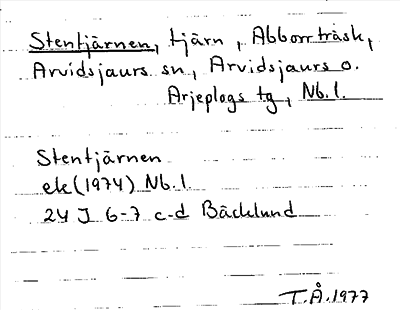 Stentjärnen, tjärn, Abborrträsk,
Arvidsjaurs sn, Arvidsjaurs o.
Arjeplogs tg, Nb. l.
Stentjärnen
ek (1974) Nb. l
24 J 6-7 c-d Bäcklund
T.Å. 1977